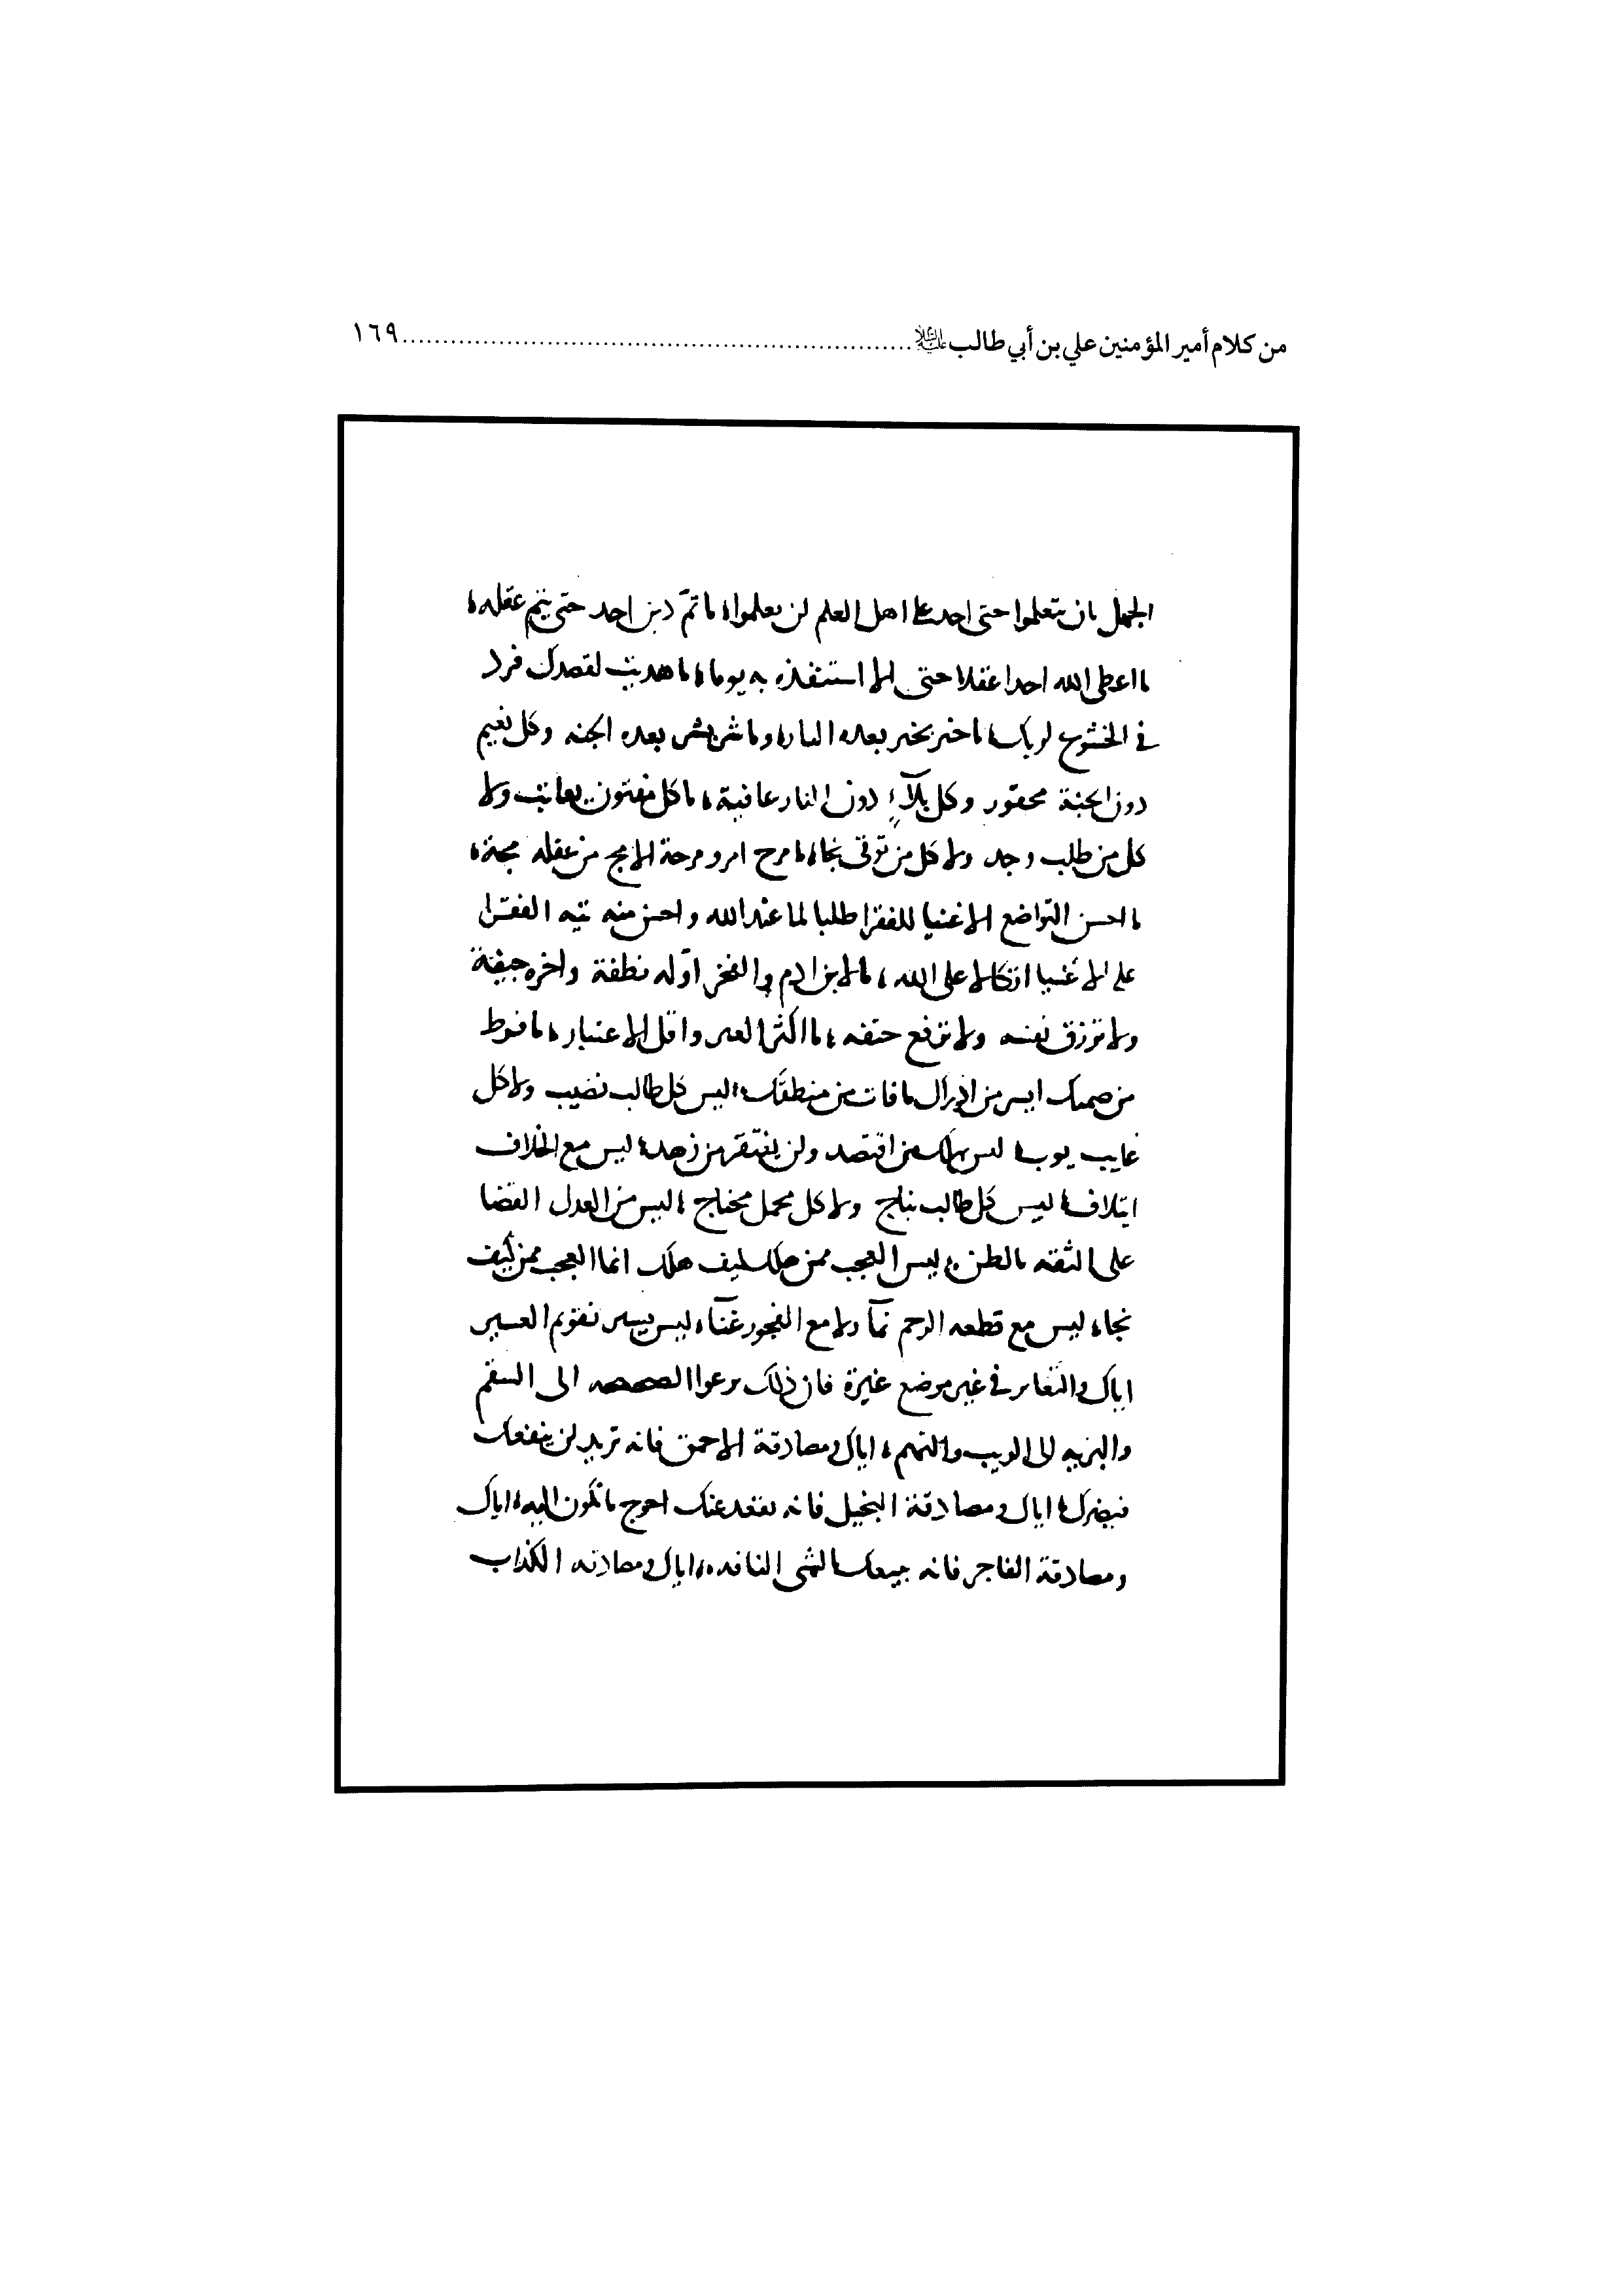 من كلام أمير المؤمنين علي بن أبي طالب عليه السلام ........ ١٦٩
الجهل ان يتعلموا حتى اخد على اهل العلم لن يعلموا، ما تمّ دين احد حتى يتم عقله،
ما اعطى الله احدا عقلا حتى الا استنقذه به يوما، ما هديت لقصدك فرد
في الخشوع لربك، ما خير بخير بعده النار، وما شر بشر بعده الجنه وكل نعيم
دون الجنة محقور وكل بلآءٍ دون النار عافية، ما كل مفتون يعاتب ولا
كل من طلب وجد ولا كل من توقى نجا، ما مزح امرو مزحة الا مج من عقله مجة،
ما احسن التواضع الاغنيا للفقرا طلبا لما عند الله واحسن منه تيه الفقرا
على الاغنيا اتكالا على الله، ما لابن ادم والفخر اوّله نطفة واخره جيفة
ولا يرزق نفسه ولا يدفع حتفه، ما اكثر العبر واقل الاعتبار، ما فرط
من صمتك ايسر من ادراك ما فات من منطقك، ليس كل طالب نصيب ولا كل
غايب يوب، ليس يهلك من اقتصد ولن يفتقر من زهد، ليس مع الخلاف
ايتلاف، ليس كل طالب بناج ولا كل مجمل محتاج، ليس من العدل القضا
على الثقه بالظن، ليس العجب ممن هلك كيف هلك انما العجب ممن كيف
نجا، ليس مع قطعه الرحم نمآ ولا مع الفجور غنآ، ليس بيسير تقويم العسير
اياك والتغاير في غير موضع غيرة فان ذلك يدعوا الصحيحه الى السقم
والبريه الى الريب والتهم، اياك ومصادقة الاحمق فانه يريد لن ينفعك
فيضرك، اياك ومصادقة البخيل فانه يقعد عنك احوج ما تكون اليه، اياك
ومصادقة الفاجر فانه يبيعك بالشى التافه، اياك ومصادقه الكذاب